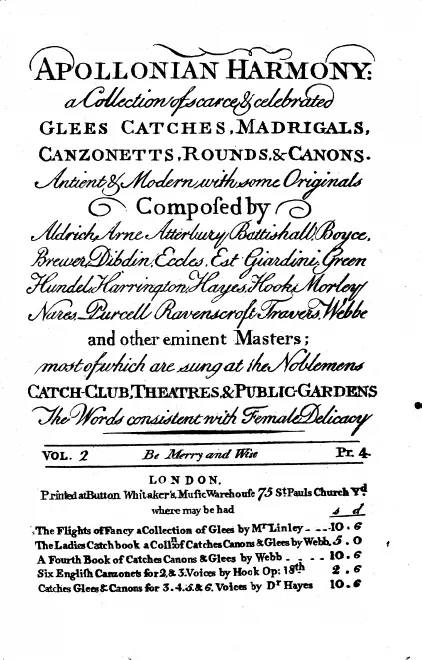 APOLLONIAN HARMONY:
a Collection of scarce & celebrated
GLEES CATCHES, MADRIGALS,
CANZONETTS, ROUNDS, & CANONS.
Antient & Modern with some Originals
Compoſed by
Aldrich, Arne, Atterbury, Battishall, Boyce,
Brewer, Dibdin, Eccles, Est, Giardini, Green
Handel, Harrington, Hayes, Hook, Morley
Nares, Purcell, Ravenscroft, Travers, Webbe
and other eminent Masters;
most of which are sung at the Noblemens
CATCH-CLUB, THEATRES, & PUBLIC-GARDENS
The Words consistent with Female Delicacy
VOL. 2 Be Merry and Wise Pr. 4
LONDON,
Printed at Button Whitaker's, Muſic Warehouſe 75 St Pauls Church Yd
where may be had s d
The Flights of Fancy a Collection of Glees by Mr Linley - - - 10 . 6
The Ladies Catch book a Colln of Catches Canons & Glees by Webb. 5 . 0
A Fourth Book of Catches Canons & Glees by Webb - - - 10 . 6
Six Engliſh Canzonets for 2, & 3. Voices by Hook Op: 18th 2 . 6
Catches Glees & Canons for 3. 4. 5. & 6. Voices by Dr Hayes 10 . 6